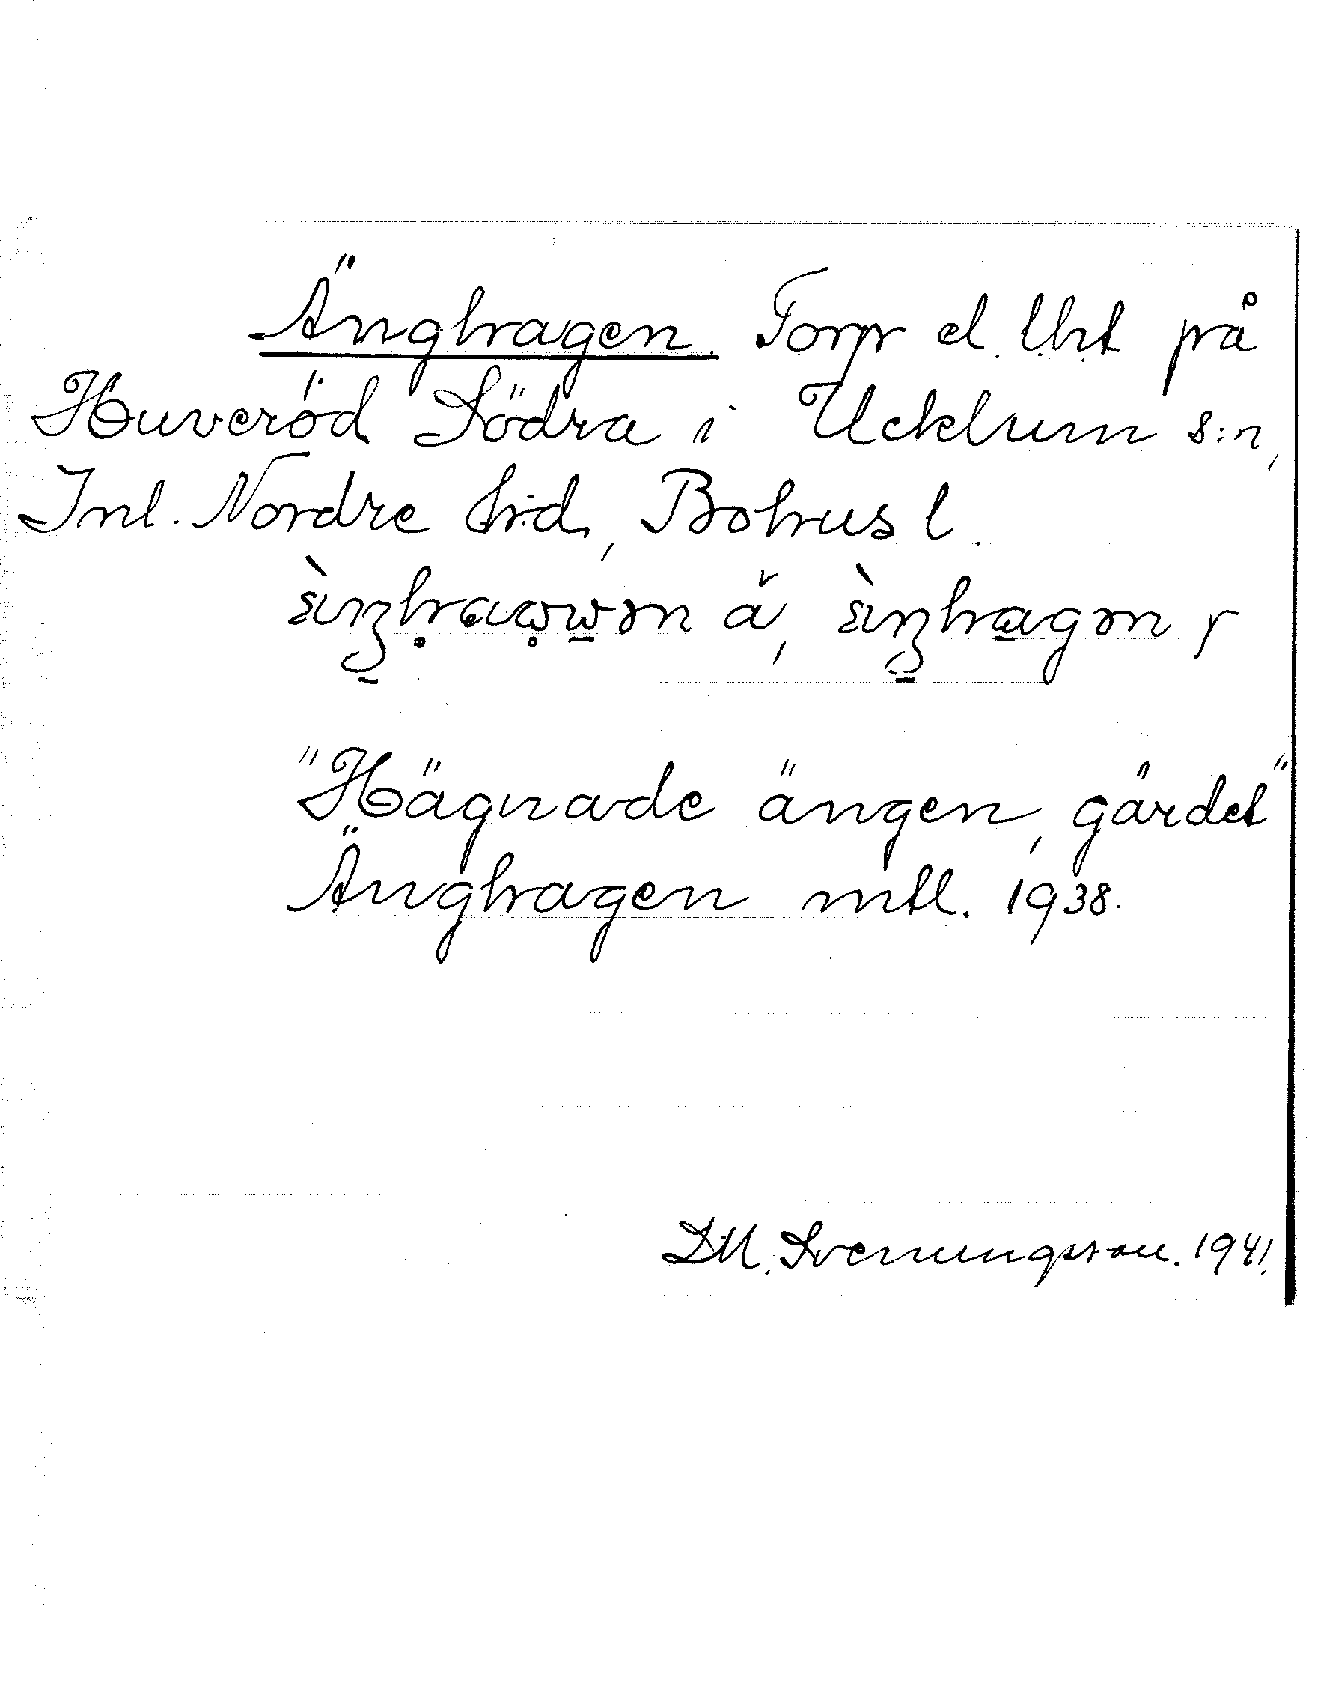 Änghagen. Torp el. lht på
Huveröd Södra i Ucklum s:n,
Inl. Nordre hd, Bohus l.
"Hägnade ängen, gärdet"
Änghagen mtl. 1938.
D.M. Svenungsson. 1941.